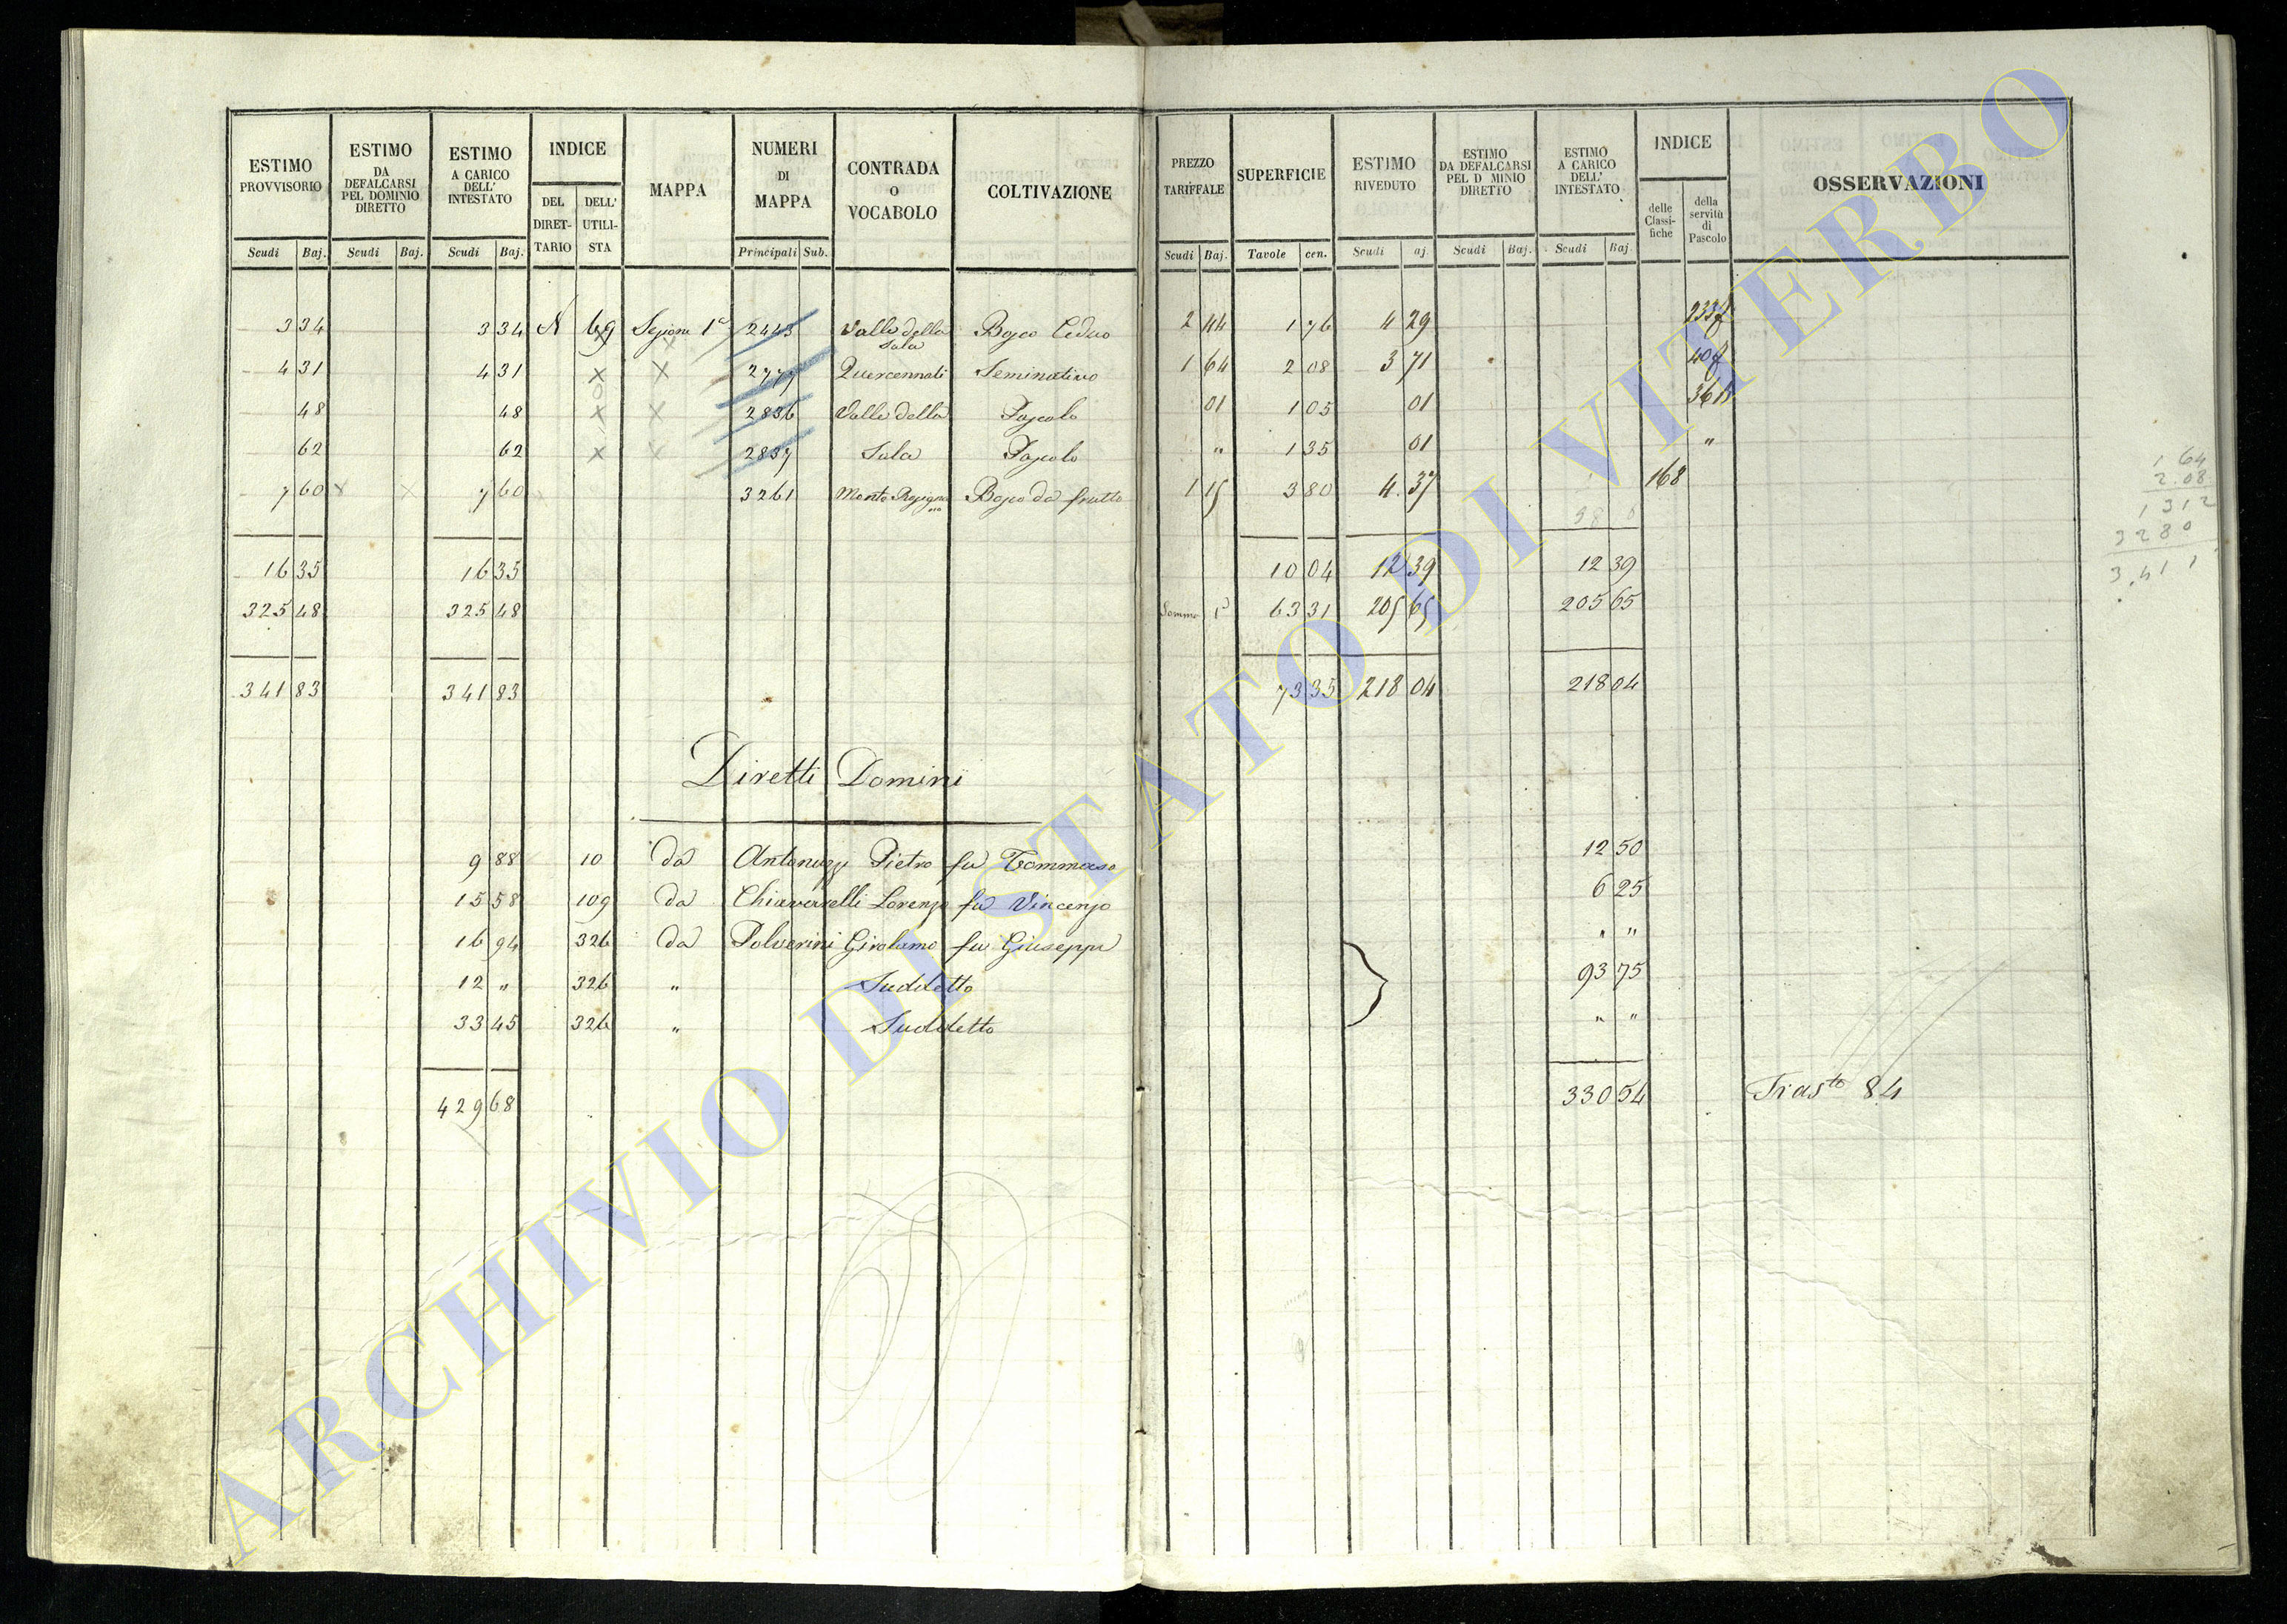 ESTIMO PROVVISORIO | ESTIMO DA DEFALCARSI PEL DOMINIO DIRETTO | ESTIMO A CARICO DELL' INTESTATO | INDICE | MAPPA | NUMERI DI MAPPA | CONTRADA O VOCABOLO | COLTIVAZIONE | PREZZO TARIFFALE | SUPERFICIE | ESTIMO RIVEDUTO | ESTIMO DA DEFALCARSI PEL D MINIO DIRETTO | ESTIMO A CARICO DELL' INTESTATO | INDICE | OSSERVAZIONI
DEL DIRET-TARIO | DELL' UTILI-STA | delle Classi-fiche | della servitù di Pascolo
Scudi | Baj. | Scudi | Baj. | Scudi | Baj. | Principali | Sub. | Scudi | Baj. | Tavole | cen. | Scudi | aj | Scudi | Baj. | Scudi | Baj.
3 34 | 3 34 | 69 | Sezione 1a | 2443 | Valle della Sala | Bosco Ceduo | 2 44 | 1 76 | 4 29 | 233f
4 31 | 4 31 | x | x | 2777 | Quercennati | Seminativo | 1 64 | 2 08 | 3 71 | 40f
48 | 48 | x | x | 2836 | Valle della | Pascolo | 01 | 1 05 | 01
62 | 62 | x | x | 2837 | Sala | Pascolo | " | 1 35 | 01 | "
7 60 | x | x | 7 60 | 3261 | Bosco da frutto | 1 15 | 3 80 | 4 37 | 168
16 35 | 16 35 | 10 04 | 12 39 | 12 39
325 48 | 325 48 | 63 31 | 205 65 | 205 65
341 83 | 341 83 | 73 35 | 218 04 | 218 04
Diretti Domini
9 88 | 10 | da | Antonuzzi Pietro fu Tommaso | 12 50
15 58 | 109 | da | Chiaverelli Lorenzo fu Vincenzo | 6 25
16 94 | 326 | da | Polverini Girolamo fu Giuseppe | " "
12 " | 326 | " | Suddetto | 93 75
33 45 | 326 | " | Suddetto | " "
429 68 | 330 54 | Trasto 84
1 64
2.08
1312
3280
3.411
ARCHIVIO DI STATO DI VITERBO